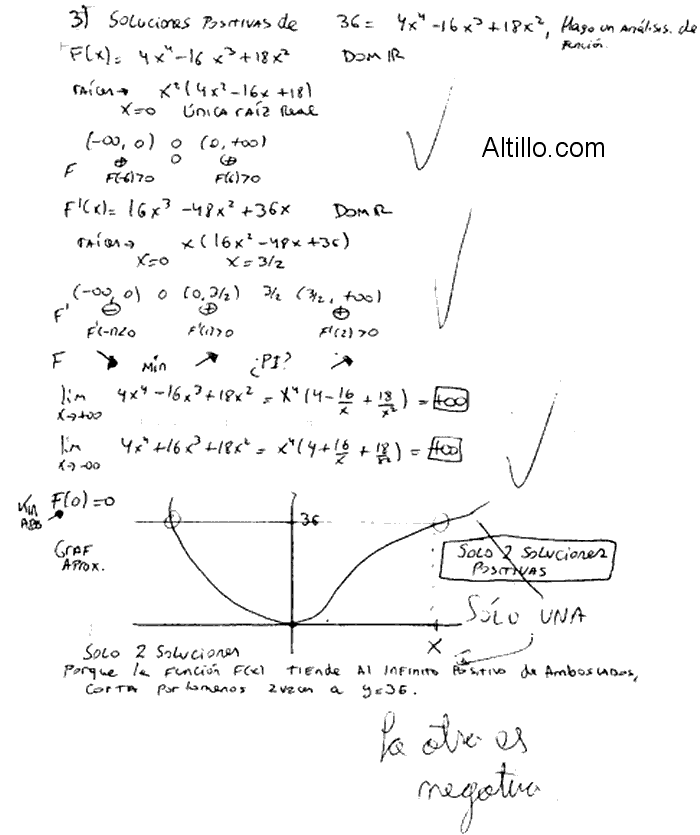 3) Soluciones Positivas de 36 = 4x⁴ - 16x³ + 18x², Hago un análisis de función.
F(x) = 4x⁴ - 16x³ + 18x² Dom ℝ
raíces → x²(4x² - 16x + 18)
x=0 única raíz real
(-∞, 0) 0 (0, +∞)
F ⊕ 0 ⊕
F(-6)>0 F(6)>0
Altillo.com
F'(x) = 16x³ - 48x² + 36x Dom ℝ
raíces → x(16x² - 48x + 36)
x=0 x = 3/2
(-∞, 0) 0 (0, 3/2) 3/2 (3/2, +∞)
F' ⊖ ⊕ ⊕
F'(-1)<0 F'(1)>0 F'(2)>0
F ↘ Min ↗ ¿PI? ↗
lim x→+∞ 4x⁴ - 16x³ + 18x² = x⁴(4 - 16/x + 18/x²) = +∞
lim x→-∞ 4x⁴ + 16x³ + 18x² = x⁴(4 + 16/x + 18/x²) = +∞
Min Abs F(0) = 0
36
Graf Aprox.
Solo 2 soluciones
positivas
Sólo UNA
x
Solo 2 soluciones
Porque la función F(x) tiende al infinito positivo de ambos lados,
corta por lo menos 2 veces a y=36.
La otra es
negativa